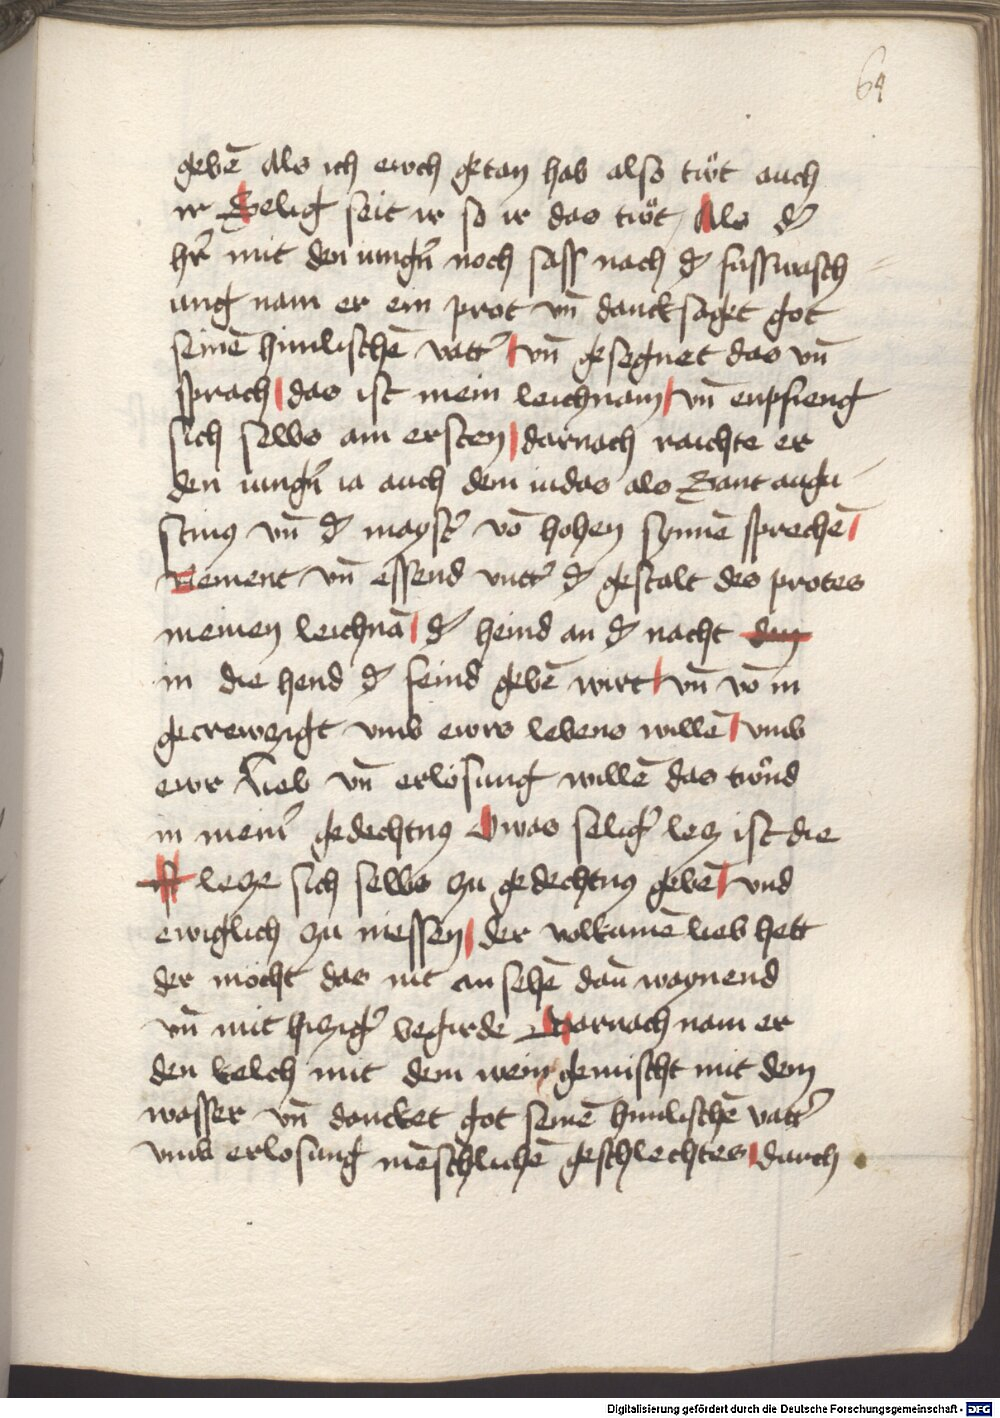 64
gebē Als ich ewch getan hab also tŵt auch
ir Selig seit ir so ir das tŵt / Als d᷑
hr̄ mit den iungr̄n noch sass nach d᷑ fusswasch
ung nam er ein prot vn̄ dancksaget got
seinē himlischē vatt᷑ | vn̄ gesegnet das vn̄
sprach | das ist mein leichnam | vn̄ enpfieng
sich selbs am ersten | darnach raichte er
den iungr̄n ia auch dem iudas als Sant augu
stin9 vn̄ d᷑ mayst᷑ vō hohen synnē sprechē |
Nement vn̄ essend vntt᷑ d᷑ gestalt des protes
meinen leichnā | d᷑ heind an d᷑ nacht
in die hend d᷑ feind gebē wirt | vn̄ vō in
gecrewczigt vmb ewrs lebens willē | vmb
ewr lieb vn̄ erlosung willē das twnd
in mein᷑ gedechtn9 O was selig᷑ lecz ist die
lecze sich selbs zu gedechtn9 gebē | vnd
ewiglich zu niessen | der volkumē lieb hett
der mocht das nit an sehē dan̄ waynend
vn̄ mit hiczig᷑ begirde Darnach nam er
den kelch mit dem wein gemischt mit dem
wasser vn̄ dancket got seinē himlischē vatt᷑
vmb erlosung mēschlichē geschlechtes | durch
Digitalisierung gefördert durch die Deutsche Forschungsgemeinschaft - DFG